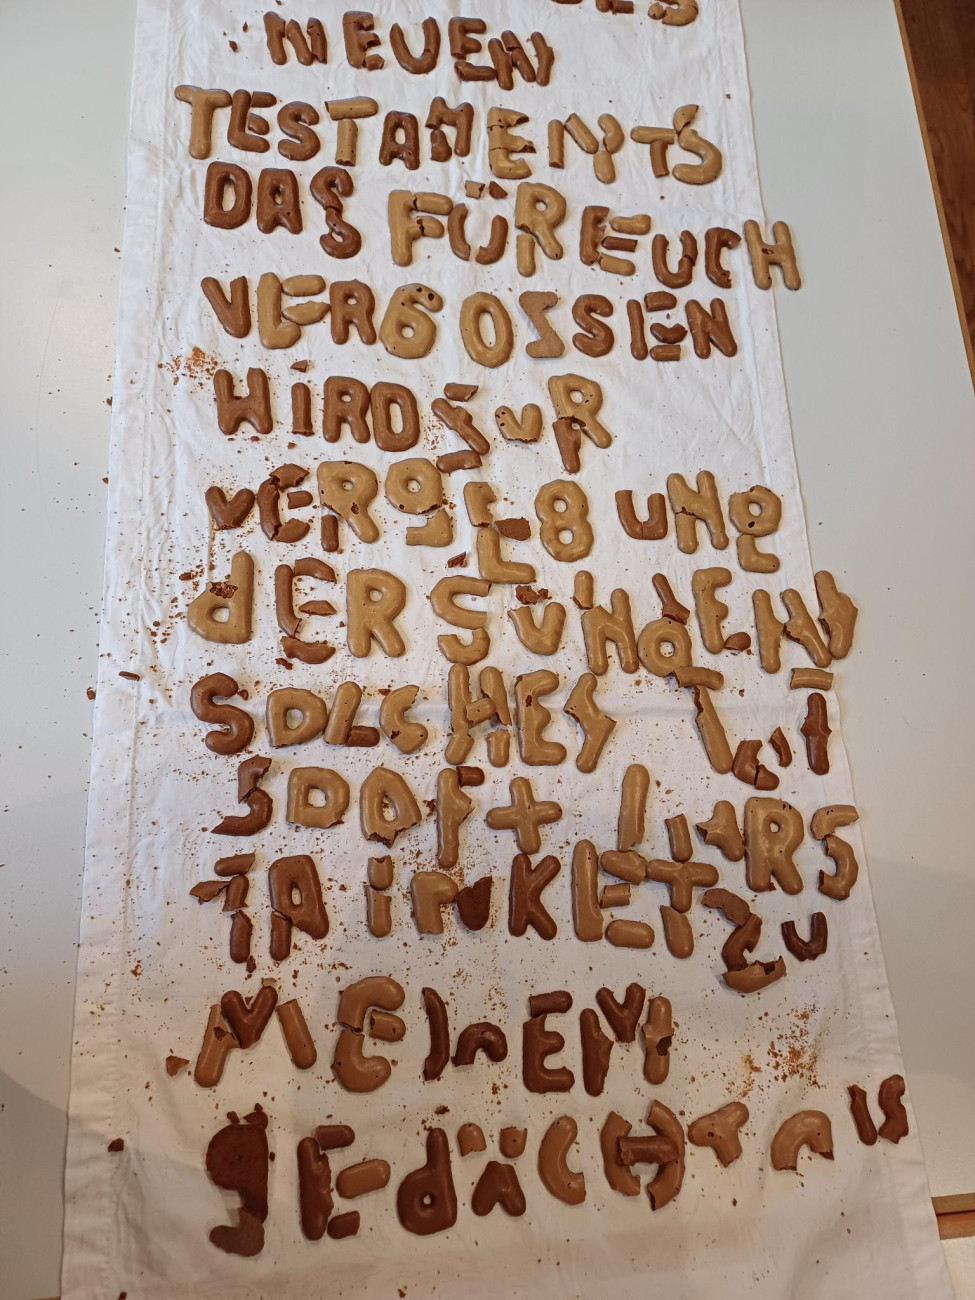 NEUEN
TESTAMENTS
DAS FÜR EUCH
VERGOSSEN
WIRD ZUR
VERgEBUNg
dER SÜNdEN
SOLCHES TUT
SOOFT IHRS
TRINKET ZU
MEInEM
gEdÄCHTnIS